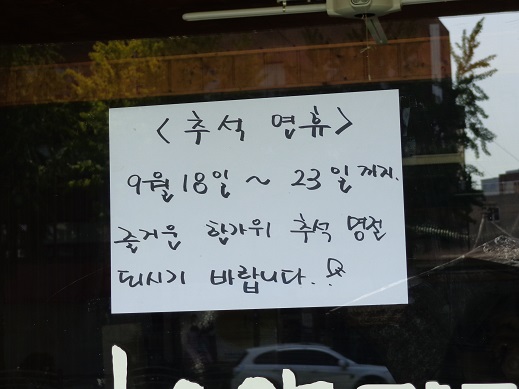 <추석 연휴>
9월 18일 ~ 23일 까지.
즐거운 한가위 추석 명절
되시기 바랍니다.